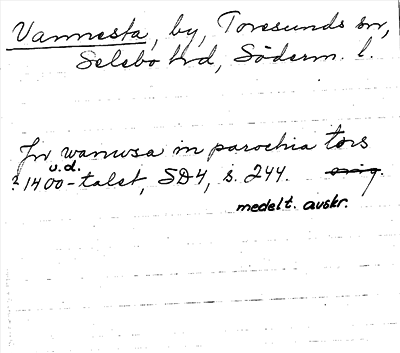 Vannesta, by, Toresunds sn,
Selebo hd, Söderm. l.
Jn wanwsa in parochia tors
u.d.
? 1400-talet, SD4, s. 244. orig.
medelt. avskr.